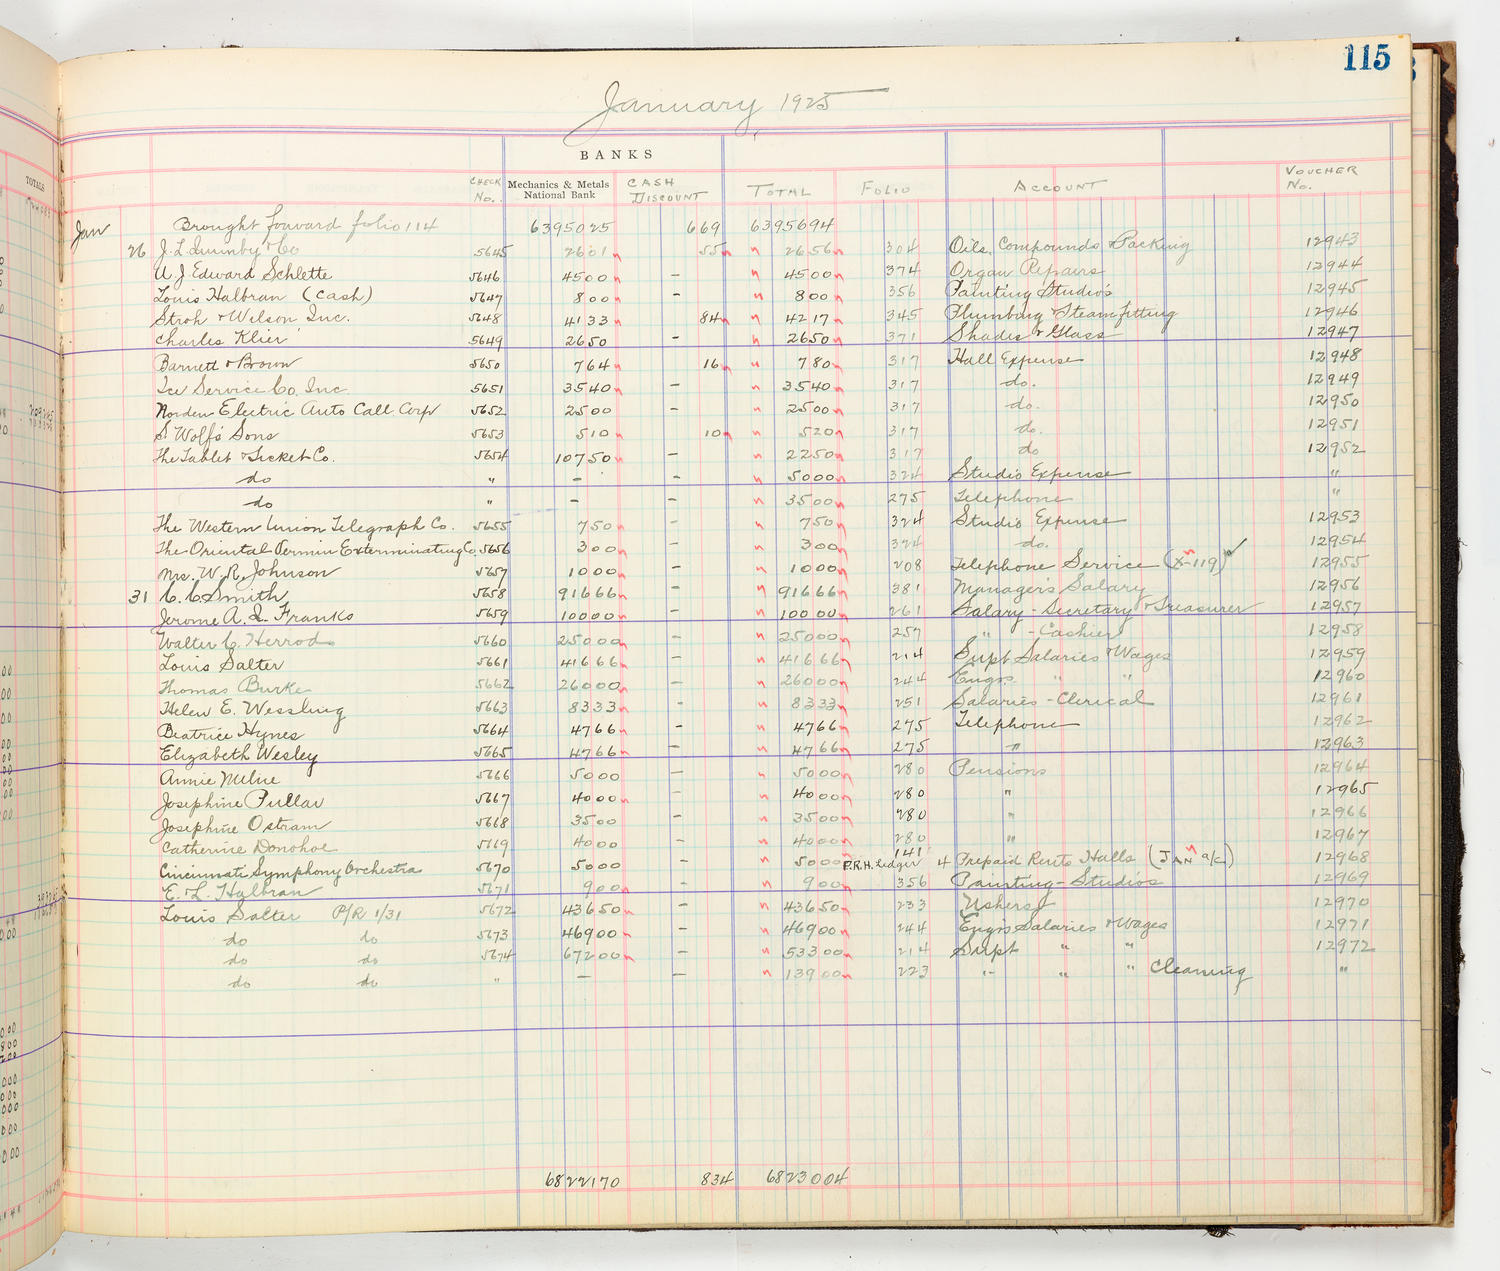 115
January 1925
BANKS
CHECK No. Mechanics & Metals National Bank CASH DISCOUNT TOTAL FOLIO ACCOUNT VOUCHER No.
Jan Brought forward folio 114 6395025 669 6395694
26 J. L. Quimby & Co 5645 2601 55 " 2656 304 Oils, Compounds & Packing 12943
U J Edward Schlette 5646 4500 - " 4500 374 Organ Repairs 12944
Louis Halbran (Cash) 5647 800 - " 800 356 Painting Studio's 12945
Stroh & Wilson Inc. 5648 4133 84 " 4217 345 Plumbing & Steamfitting 12946
Charles Klier 5649 2650 - " 2650 371 Shades & Glass 12947
Barnett & Brown 5650 764 16 " 780 317 Hall Expense 12948
Ice Service Co. Inc. 5651 3540 - " 3540 317 do. 12949
Norden Electric Auto Call. Corp 5652 2500 - " 2500 317 do. 12950
S. Wolff's Sons 5653 510 10 " 520 317 do. 12951
The Tablet & Ticket Co. 5654 10750 - " 2250 317 do 12952
do " - - " 5000 324 Studio Expense "
do " - - " 3500 275 Telephone "
The Western Union Telegraph Co. 5655 750 - " 750 324 Studio Expense 12953
The Oriental Vermin Exterminating Co. 5656 300 - " 300 324 do. 12954
Mrs. W. R. Johnson 5657 1000 - " 1000 208 Telephone Service (X-119) ✓ 12955
31 C. C. Smith 5658 91666 - " 91666 381 Manager's Salary 12956
Jerome A. Q. Franks 5659 10000 - " 10000 261 Salary - Secretary & Treasurer 12957
Walter C. Herrod 5660 25000 - " 25000 257 " - Cashier 12958
Louis Salter 5661 41666 - " 41666 214 Supt Salaries & Wages 12959
Thomas Burke 5662 26000 - " 26000 244 Engrs " " 12960
Helen E. Wessling 5663 8333 - " 8333 251 Salaries - Clerical 12961
Beatrice Hynes 5664 4766 - " 4766 275 Telephone 12962
Elizabeth Wesley 5665 4766 - " 4766 275 " 12963
Annie Milne 5666 5000 - " 5000 280 Pensions 12964
Josephine Pullar 5667 4000 - " 4000 280 " 12965
Josephine Ostram 5668 3500 - " 3500 280 " 12966
Catherine Donohoe 5669 4000 - " 4000 280 " 12967
Cincinnati Symphony Orchestra 5670 5000 - " 5000 141 P.R.H. Ledger 4 Prepaid Rents Halls (JAN a/c) 12968
E. L. Halbran 5671 900 - " 900 356 Painting - Studios 12969
Louis Salter P/R 1/31 5672 43650 - " 43650 233 Ushers 12970
do do 5673 46900 - " 46900 244 Engrs Salaries & Wages 12971
do do 5674 67200 - " 53300 214 Supt " " 12972
do do " - - " 13900 223 " " " Cleaning "
6822170 834 6823004